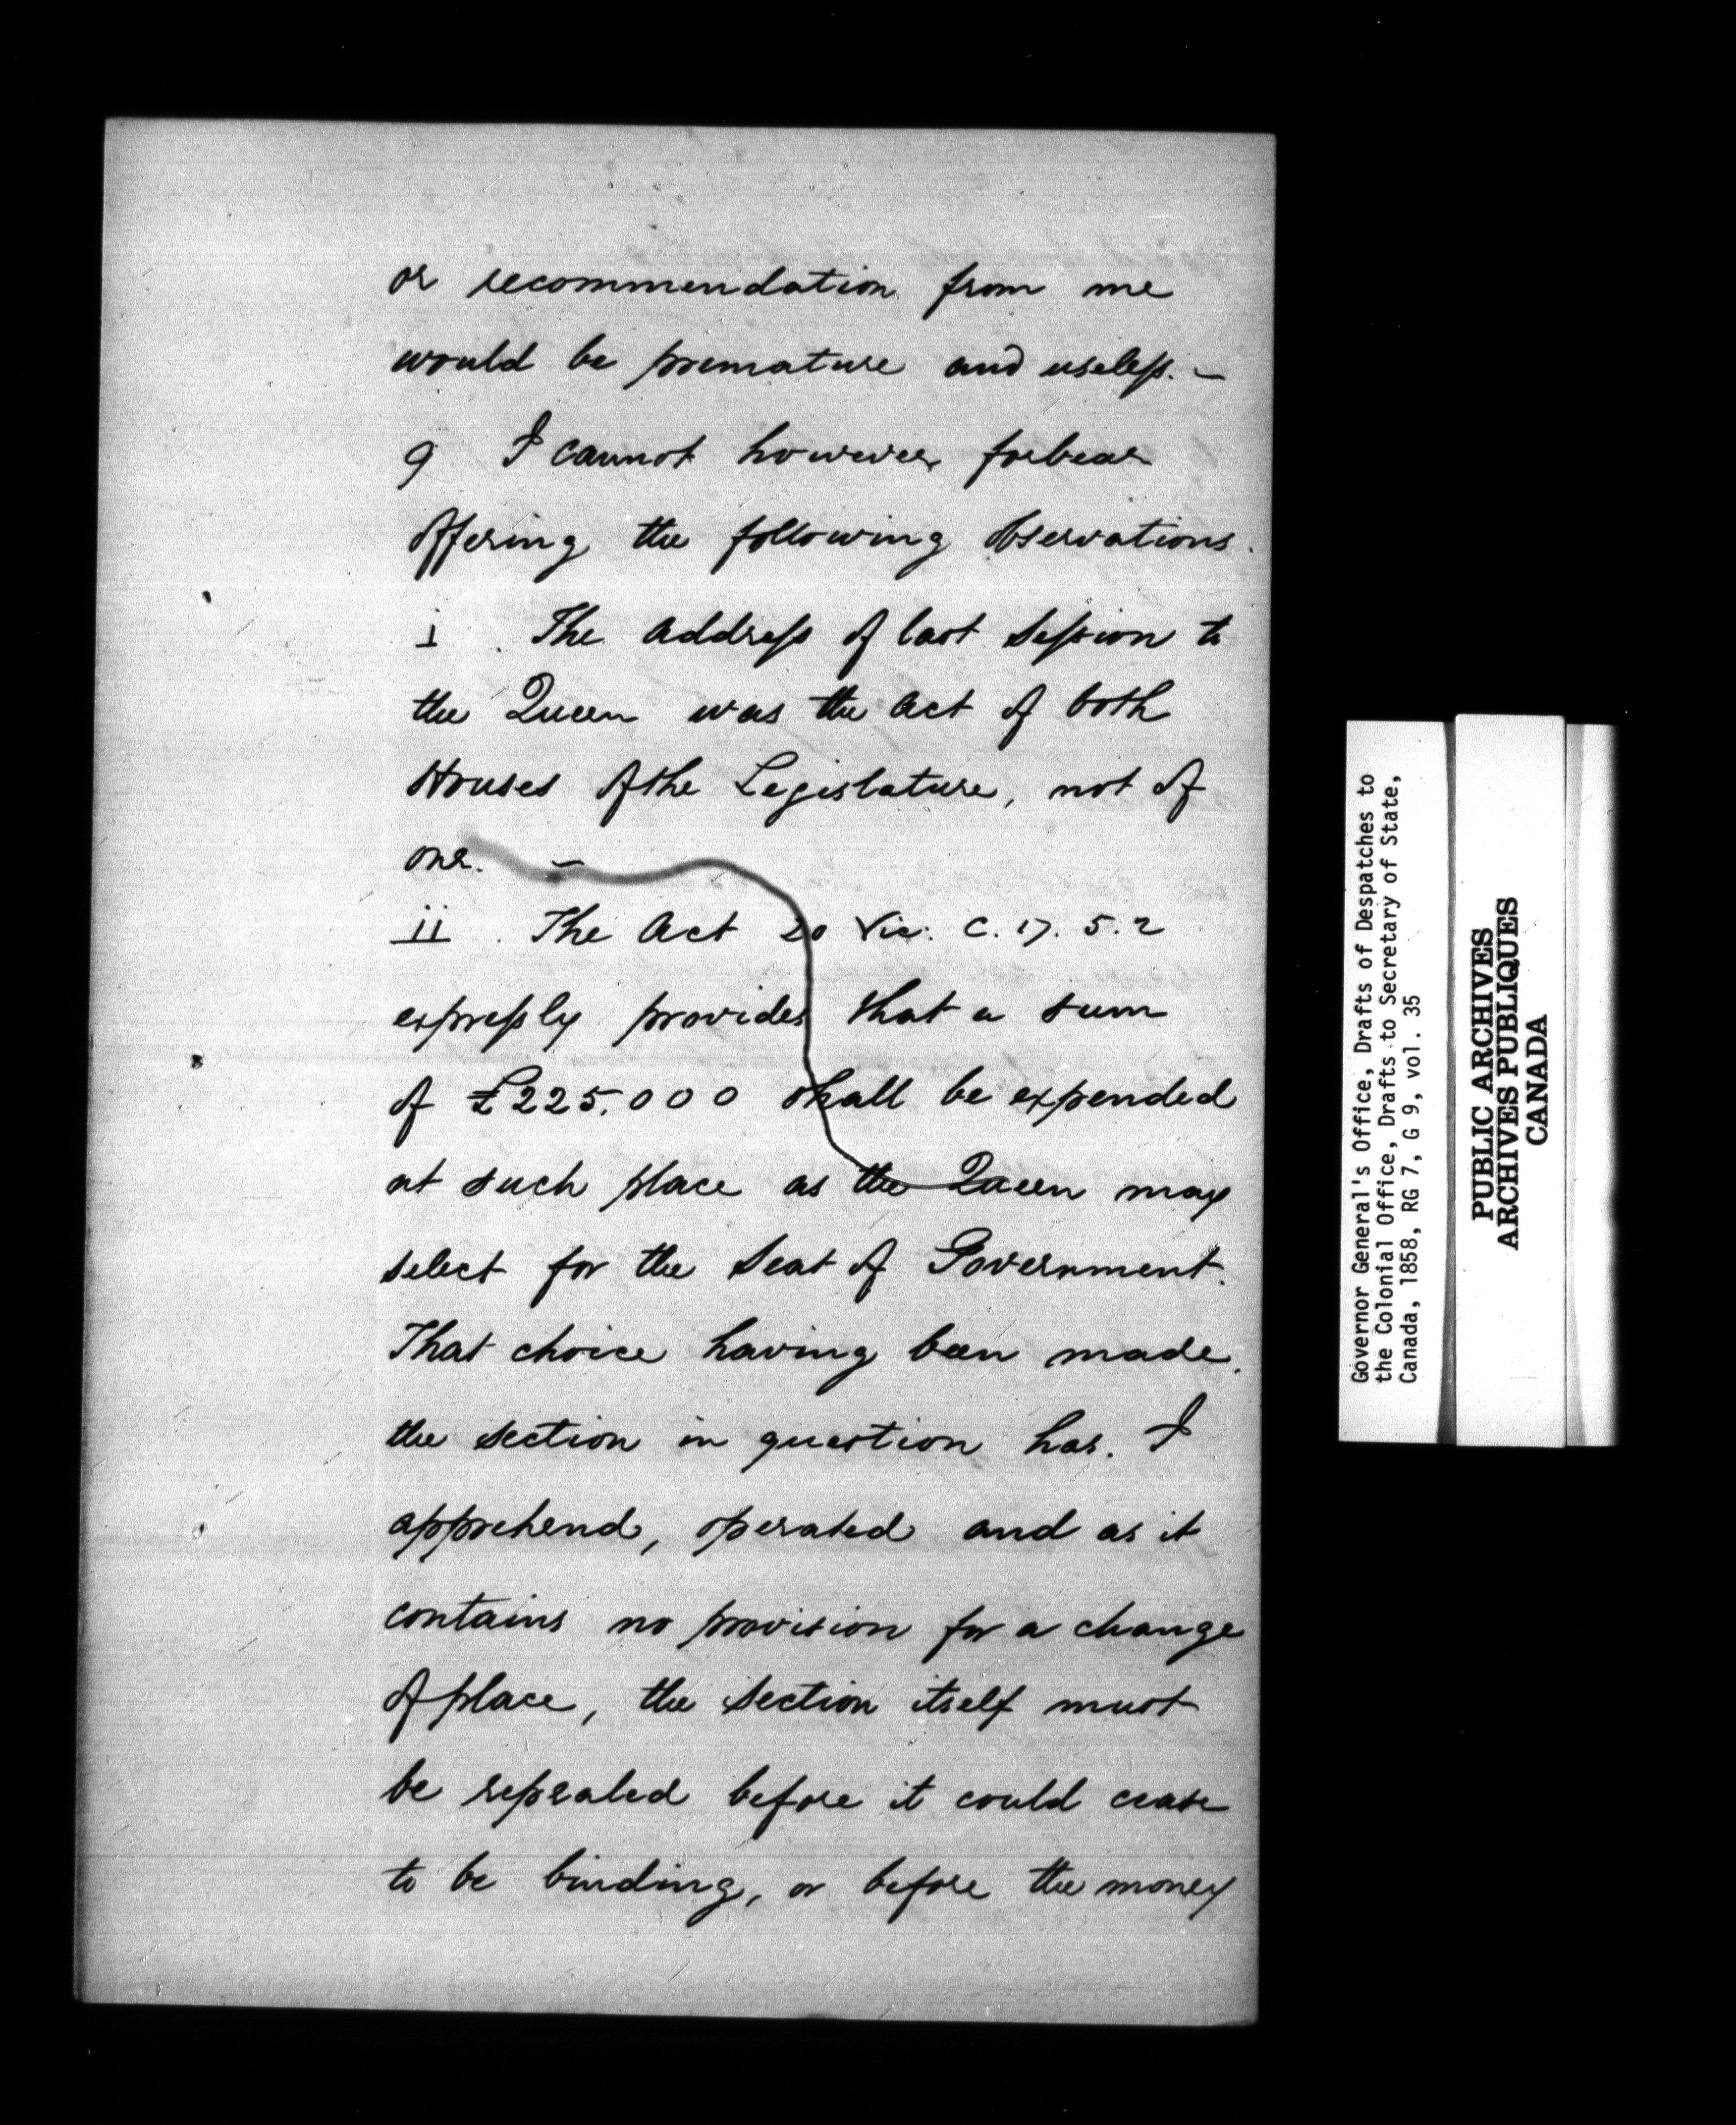 or recommendation from me
would be premature and useless. –
9 I cannot however forbear
offering the following observations.
i . The address of last Session to
the Queen was the act of both
Houses of the Legislature, not of
one. –
ii . The Act 20 Vic. C. 17. S. 2
expressly provides that a sum
of £225.000 shall be expended
at such place as the Queen may
select for the Seat of Government.
That choice having been made,
the section in question has. I
apprehend, operated and as it
contains no provision for a change
of place, the section itself must
be repealed before it could cease
to be binding, or before the money
Governor General's Office, Drafts of Despatches to
the Colonial Office, Drafts to Secretary of State,
Canada, 1858, RG 7, G 9, vol. 35
PUBLIC ARCHIVES
ARCHIVES PUBLIQUES
CANADA